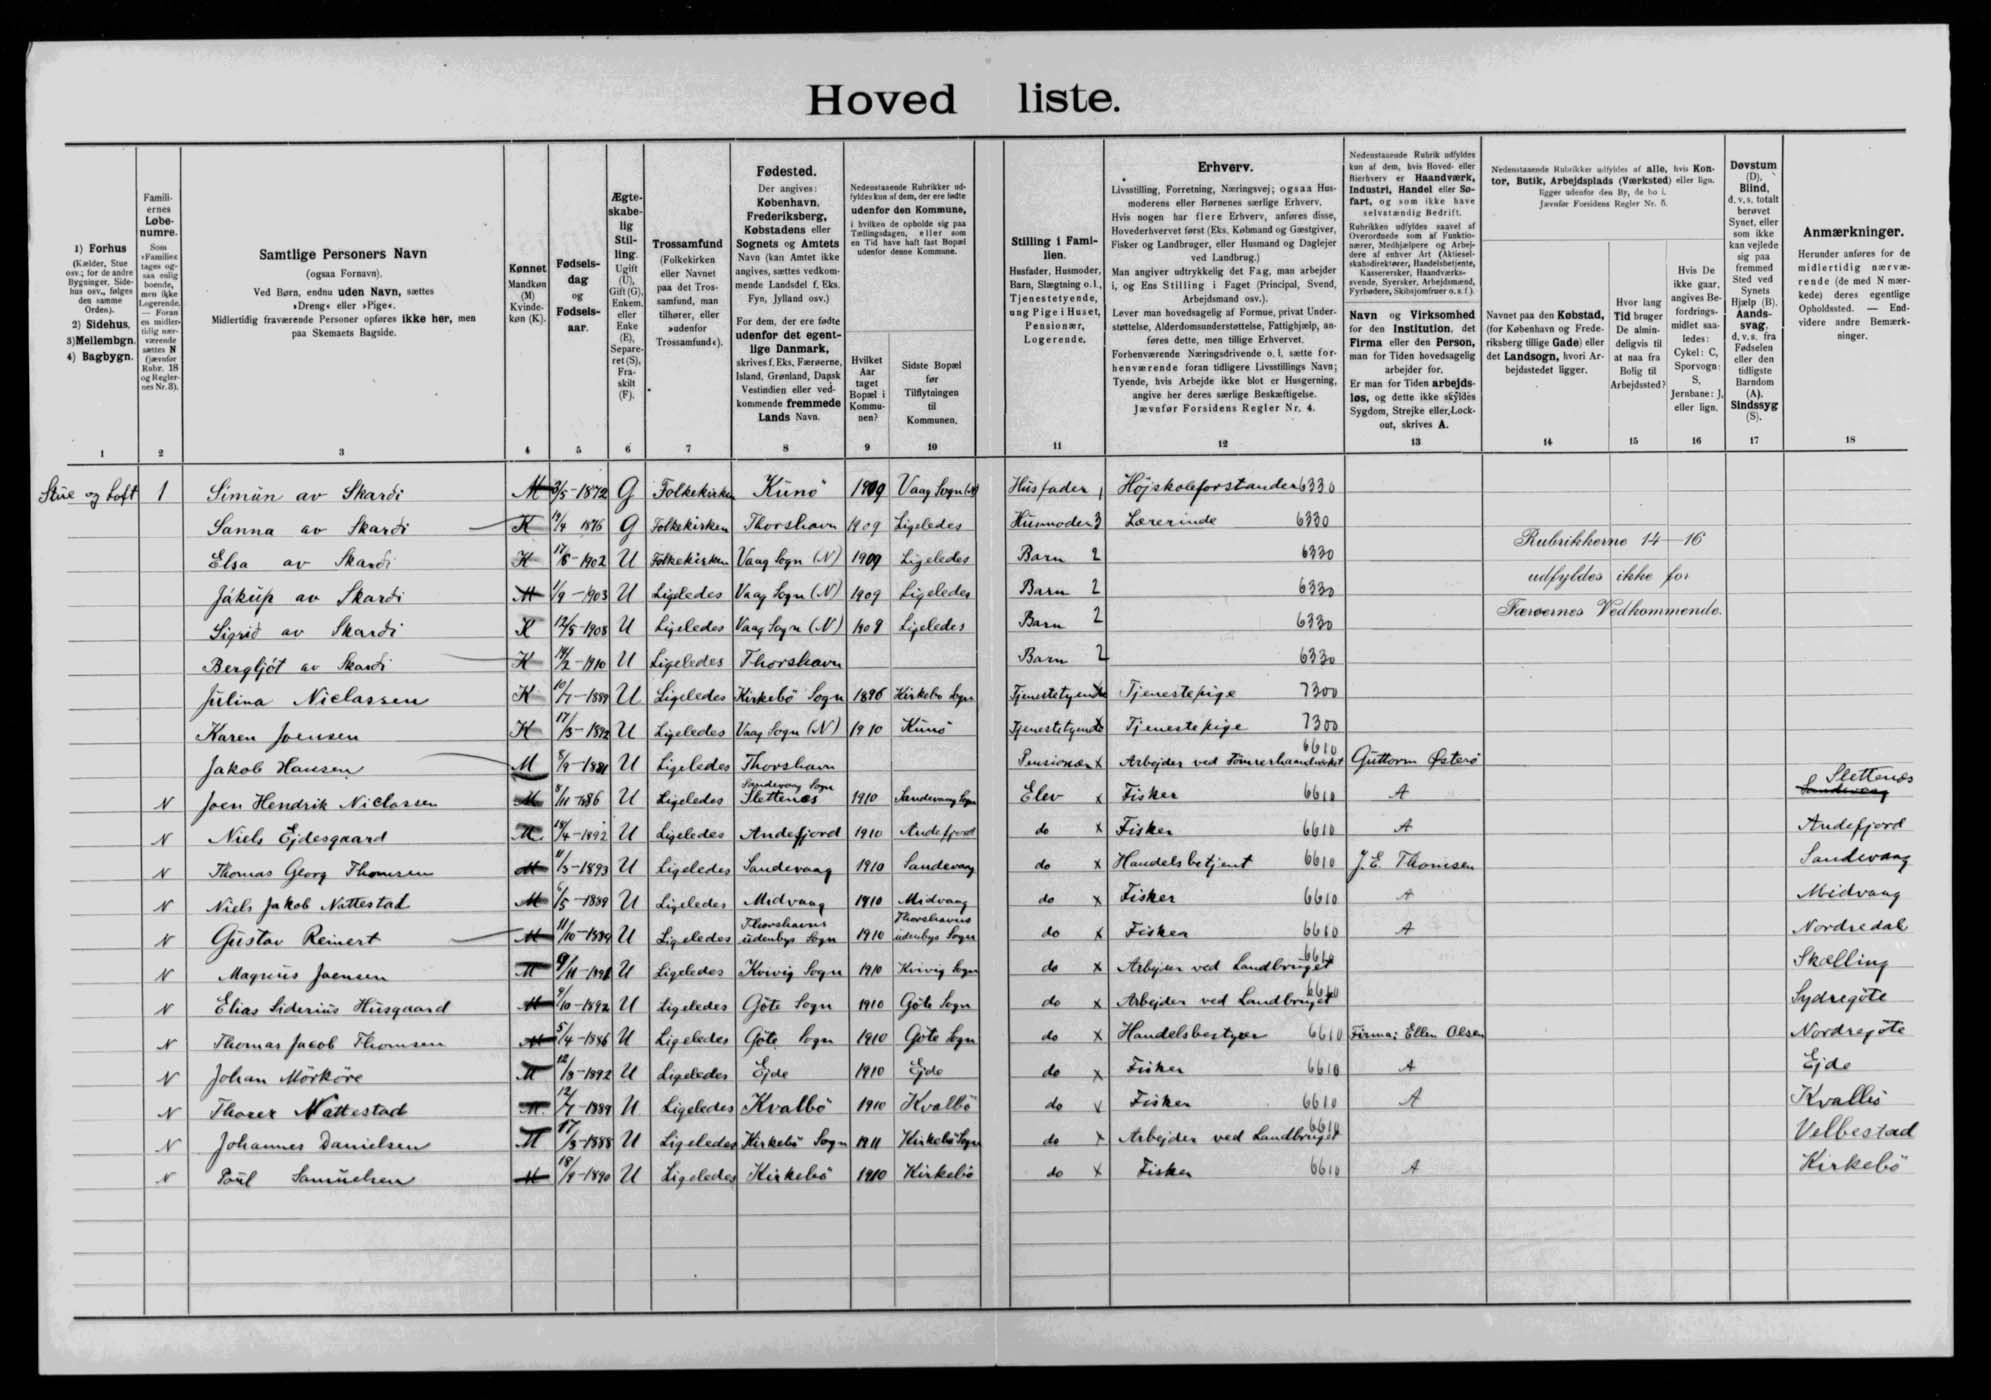 Hoved liste.
1) Forhus
(Kælder, Stue
osv.; for de andre
Bygninger, Side-
hus osv., følges
den samme
Orden).
2) Sidehus,
3) Mellembgn.
4) Bagbygn.
Famili-
ernes
Løbe-
numre.
Som
»Familie«
tages og-
saa enlig
boende,
men ikke
Logerende.
— Foran
en midler-
tidig nær-
værende
sættes N
(jævnfør
Rubr. 18
og Regler-
nes Nr. 3).
Samtlige Personers Navn
(ogsaa Fornavn).
Ved Børn, endnu uden Navn, sættes
»Dreng« eller »Pige«.
Midlertidig fraværende Personer opføres ikke her, men
paa Skemaets Bagside.
Kønnet
Mandkøn
(M)
Kvinde-
køn (K).
Fødsels-
dag
og
Fødsels-
aar.
Ægte-
skabe-
lig
Stil-
ling.
Ugift
(U),
Gift (G),
Enkem.
eller
Enke
(E),
Separe-
ret (S),
Fra-
skilt
(F).
Trossamfund
(Folkekirken
eller Navnet
paa det Tros-
samfund, man
tilhører, eller
»udenfor
Trossamfund«).
Fødested.
Der angives:
København,
Frederiksberg,
Købstadens eller
Sognets og Amtets
Navn (kan Amtet ikke
angives, sættes vedkom-
mende Landsdel f. Eks.
Fyn, Jylland osv.)
For dem, der ere fødte
udenfor det egent-
lige Danmark,
skrives f. Eks. Færøerne,
Island, Grønland, Dansk
Vestindien eller ved-
kommende fremmede
Lands Navn.
Nedenstaaende Rubrikker ud-
fyldes kun af dem, der ere fødte
udenfor den Kommune,
i hvilken de opholde sig paa
Tællingsdagen, eller som
en Tid have haft fast Bopæl
udenfor denne Kommune.
Hvilket
Aar
taget
Bopæl i
Kommu-
nen?
Sidste Bopæl
før
Tilflytningen
til
Kommunen.
Stilling i Fami-
lien.
Husfader, Husmoder,
Barn, Slægtning o. l.,
Tjenestetyende,
ung Pige i Huset,
Pensionær,
Logerende.
Erhverv.
Livsstilling, Forretning, Næringsvej; ogsaa Hus-
moderens eller Børnenes særlige Erhverv.
Hvis nogen har flere Erhverv, anføres disse,
Hovederhvervet først (Eks. Købmand og Gæstgiver,
Fisker og Landbruger, eller Husmand og Daglejer
ved Landbrug.)
Man angiver udtrykkelig det Fag, man arbejder
i, og Ens Stilling i Faget (Principal, Svend,
Arbejdsmand osv.).
Lever man hovedsagelig af Formue, privat Under-
støttelse, Alderdomsunderstøttelse, Fattighjælp, an-
føres dette, men tillige Erhvervet.
Forhenværende Næringsdrivende o. l. sætte for-
henværende foran tidligere Livsstillings Navn;
Tyende, hvis Arbejde ikke blot er Husgerning,
angive her deres særlige Beskæftigelse.
Jævnfør Forsidens Regler Nr. 4.
Nedenstaaende Rubrik udfyldes
kun af dem, hvis Hoved- eller
Bierhverv er Haandværk,
Industri, Handel eller Sø-
fart, og som ikke have
selvstændig Bedrift.
Rubrikken udfyldes saavel af
Overordnede som af Funktio-
nærer, Medhjælpere og Arbej-
dere af enhver Art (Aktiesel-
skabsdirektører, Handelsbetjente,
Kasserersker, Haandværks-
svende, Syersker, Arbejdsmænd,
Fyrbødere, Skibsjomfruer o. s. f.).
Navn og Virksomhed
for den Institution, det
Firma eller den Person,
man for Tiden hovedsagelig
arbejder for.
Er man for Tiden arbejds-
løs, og dette ikke skyldes
Sygdom, Strejke eller Lock-
out, skrives A.
Nedenstaaende Rubrikker udfyldes af alle, hvis Kon-
tor, Butik, Arbejdsplads (Værksted) eller lign.
ligger udenfor den By, de bo i.
Jævnfør Forsidens Regler Nr. 5.
Navnet paa den Købstad,
(for København og Frede-
riksberg tillige Gade) eller
det Landsogn, hvori Ar-
bejdsstedet ligger.
Hvor lang
Tid bruger
De almin-
deligvis til
at naa fra
Bolig til
Arbejdssted?
Hvis De
ikke gaar,
angives Be-
fordrings-
midlet saa-
ledes:
Cykel: C,
Sporvogn:
S,
Jernbane: J,
eller lign.
Døvstum
(D).
Blind,
d. v. s. totalt
berøvet
Synet, eller
som ikke
kan vejlede
sig paa
fremmed
Sted ved
Synets
Hjælp (B).
Aands-
svag,
d. v. s. fra
Fødselen
eller den
tidligste
Barndom
(A).
Sindssyg
(S).
Anmærkninger.
Herunder anføres for de
midlertidig nærvæ-
rende (de med N mær-
kede) deres egentlige
Opholdssted. — End-
videre andre Bemærk-
ninger.
1 2 3 4 5 6 7 8 9 10 11 12 13 14 15 16 17 18
Stue og Loft 1 Simun av Skarði M 3/5-1872 G Folkekirken Kunö 1909 Vaag Sogn (N) Husfader 1 Højskoleforstander 6330
Sanna av Skarði K 19/4 1876 G Folkekirken Thorshavn 1909 Ligeledes Husmoder 3 Lærerinde 6330
Elsa av Skarði K 17/6-1902 U Folkekirken Vaag Sogn (N) 1909 Ligeledes Barn 2 6330 Rubrikkerne 14-16
Jákup av Skarði M 1/9-1903 U Ligeledes Vaag Sogn (N) 1909 Ligeledes Barn 2 6330 udfyldes ikke for
Sigrið av Skarði K 12/5-1908 U Ligeledes Vaag Sogn (N) 1909 Ligeledes Barn 2 6330 Færøernes Vedkommende.
Bergljót av Skarði K 14/2-1910 U Ligeledes Thorshavn Barn 2 6330
Julina Niclassen K 10/7-1889 U Ligeledes Kirkebö Sogn 1896 Kirkebo Sogn Tjenestetyende Tjenestepige 7300
Karen Joensen K 17/3-1892 U Ligeledes Vaag Sogn (N) 1910 Kunö Tjenestetyende Tjenestepige 7300
Jakob Hansen M 8/9-1881 U Ligeledes Thorshavn Pensionær x Arbejder ved Tömrerhaandværket 6610 Guttorm Österö
N Joen Hendrik Niclassen M 8/11-1886 U Ligeledes Sandevaag Sogn Slettenæs 1910 Sandevaag Sogn Elev x Fisker 6610 A Sandevaag Slettenæs
N Niels Ejdesgaard M. 18/4-1892 U Ligeledes Andefjord 1910 Andefjord do x Fisker 6610 A Andefjord
N Thomas Georg Thomsen M 11/3-1893 U Ligeledes Sandevaag 1910 Sandevaag do x Handelsbetjent 6610 J. E. Thomsen Sandevaag
N Niels Jakob Nattestad M 6/5-1889 U Ligeledes Midvaag 1910 Midvaag do x Fisker 6610 A Midvaag
N Gustav Reinert M 11/10-1889 U Ligeledes Thorshavns udenbys Sogn 1910 Thorshavns udenbys Sogn do x Fisker 6610 A Nordredal
N Magnus Joensen M U Ligeledes Kvivig Sogn 1910 Kvivig Sogn do x Arbejder ved Landbruget 6610 Skælling
N Elias Siderius Husgaard M 9/10-1892 U Ligeledes Göte Sogn 1910 Göte Sogn do x Arbejder ved Landbruget 6610 Sydregöte
N Thomas Jacob Thomsen M 5/4-1886 U Ligeledes Göte Sogn 1910 Göte Sogn do x Handelsbestyrer 6610 Firma: Ellen Olsen Nordregöte
N Johan Mörköre M 12/8-1892 U Ligeledes Ejde 1910 Ejde do x Fisker 6610 A Ejde
N Thorer Nattestad M. 12/7-1889 U Ligeledes Kvalbö 1910 Kvalbö do x Fisker 6610 A Kvalbö
N Johannes Danielsen M 17/3-1888 U Ligeledes Kirkebö Sogn 1911 Kirkebö Sogn do x Arbejder ved Landbruget 6610 Velbestad
N Poul Samuelsen M 18/9-1890 U Ligeledes Kirkebö 1910 Kirkebö do x Fisker 6610 A Kirkebö